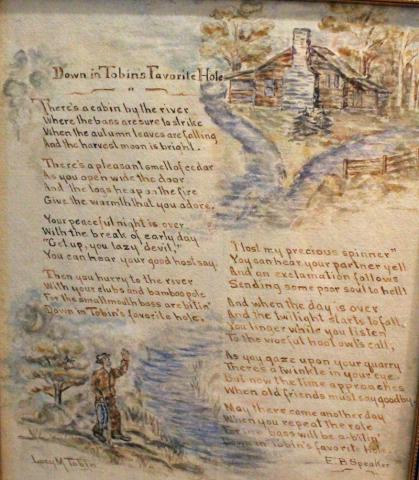 Down in Tobins Favorite Hole
There's a cabin by the river
Where the bass are sure to strike
When the autumn leaves are falling
And the harvest moon is bright.
There's a pleasant smell of cedar
As you open wide the door
And the logs heap on the fire
Give the warmth that you adore.
Your peaceful night is over
With the break of early day
"Get up, you lazy devil,"
You can hear your good host say.
Then you hurry to the river
With your clubs and bamboo pole
For the smallmouth bass are bitin'
Down in Tobin's favorite hole.
"I lost my precious spinner"
You can hear your partner yell
And an exclamation follows
Sending some poor soul to hell!
And when the day is over
And the twilight starts to fall
You linger while you listen
To the woeful hoot owl's call;
As you gaze upon your quarry
There's a twinkle in your eye
But now the time approaches
When old friends must say goodby.
May there come another day
When you repeat the role
bass will be a-bitin'
Down in Tobin's favorite Hole.
E.B Speaker
Lucy M. Tobin